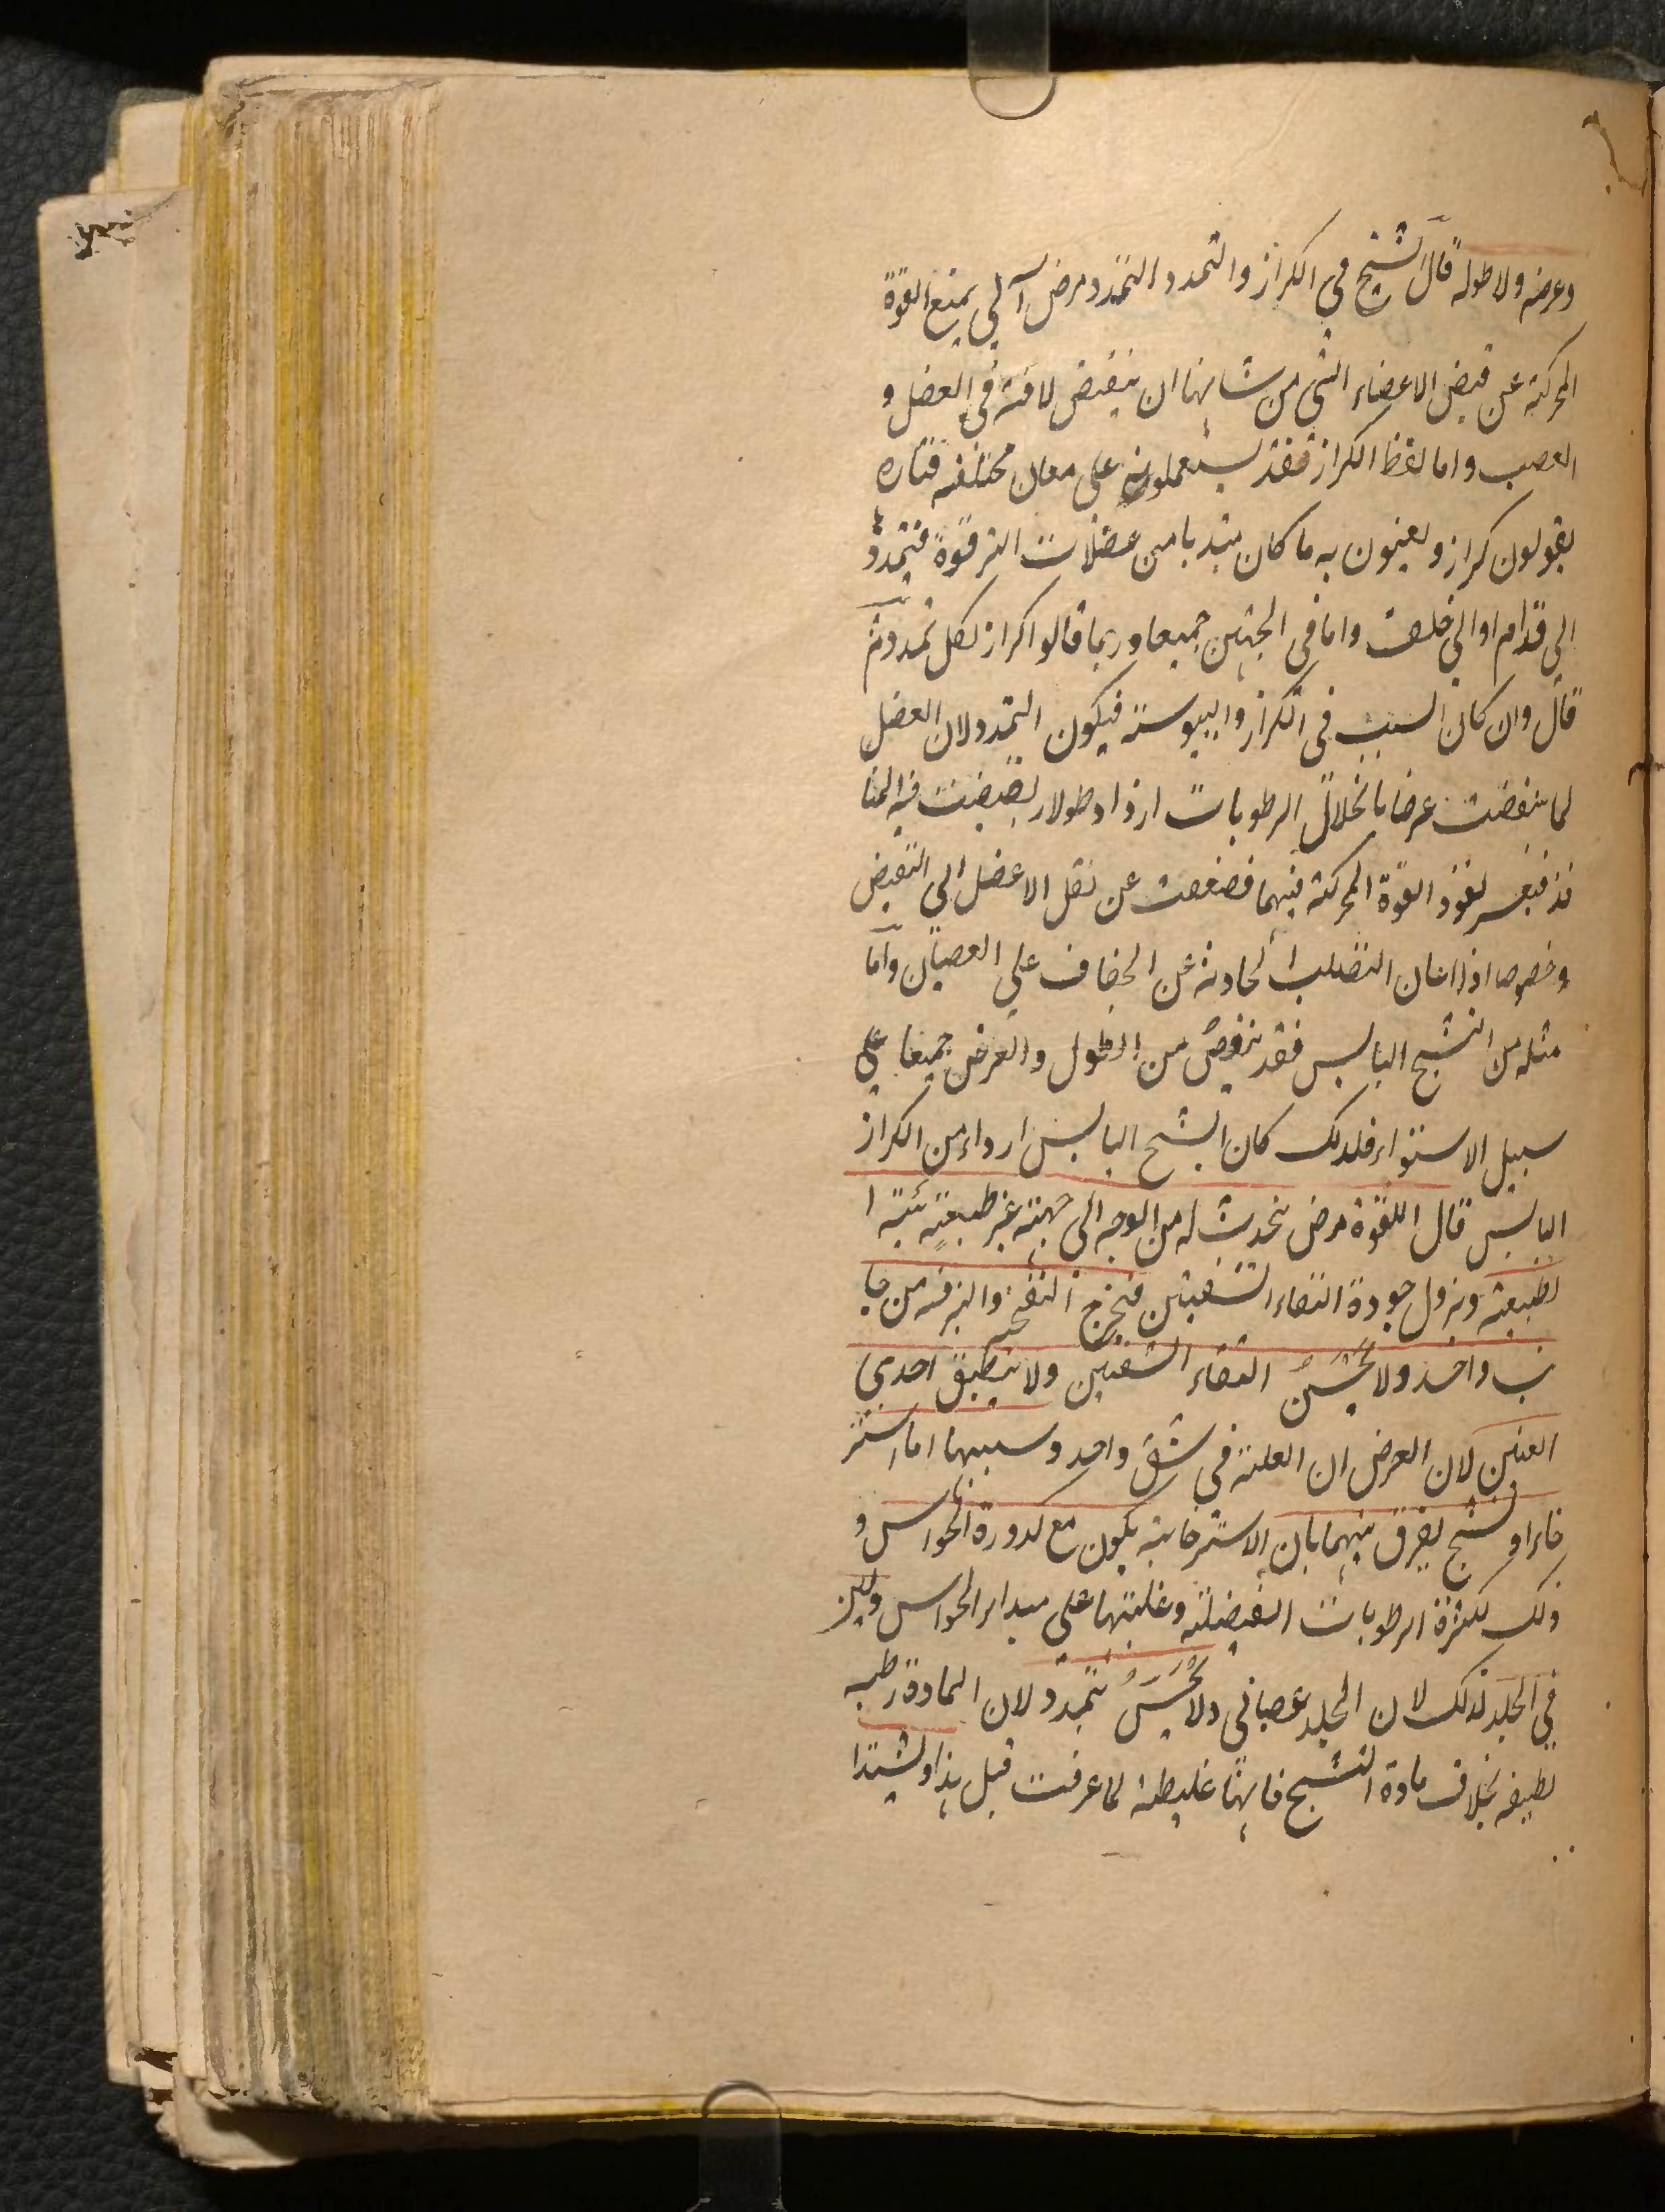 وعرضه ولا طوله قال الشيخ في الكزاز والتمدد التمدد مرض آلي يمنع القوة
المحركة عن قبض الاعضاء التي من شانها ان ينقبض لافة في العضل و
العصب واما لفظ الكزاز فقد يستعملونه على معان مختلفة فتارة
يقولون كزاز ويعنون به ما كان مبتديا من عضلات الترقوة فتمدد
الى قدام او الى خلف واما في الجهتين جميعا وربما قالوا كزاز لكل تمدد ثم
قال وان كان السبب في الكزاز واليبوسة فيكون التمدد لان العضل
لما نتقضت عرضا بانحلال الرطوبات ازداد طولا ربضيقت فيه المنا
فذ فيعسر نفوذ القوة المحركة فيهما فضعفت عن نقل الاعضل الى التقبض
وخصوصا اذا اعان التصلب الحادث عن الجفاف على العصيان واما
مثله من التشنج اليابس فقد ينقص من الطول والعرض جميعا على
سبيل الاستواء فلذلك كان التشنج اليابس ارداء من الكزاز
اليابس قال اللقوة مرض يحدث له من الوجه الى جهة غير طبيعية
لطبيعته ويزول جودة التقاء الشفتين فيخرج النفخة والبزقة من جا
نب واحد ولا يحسن التقاء الشفتين ولا ينطبق احدى
العينين لان العرض ان العلة في شق واحد وسببها اما استر
خاء او تشنج يفرق بينهما بان الاسترخائية يكون مع كدورة الحواس و
ذلك لكثرة الرطوبات الفضلية وغلبتها على مبداء الحواس ولين
في الجلد لذلك لان الجلد عصباني ولا يحس بتمدد لان المادة رطبة
لطيفة بخلاف مادة التشنج فانها غليظة لما عرفت قبل هذا وليشتدا